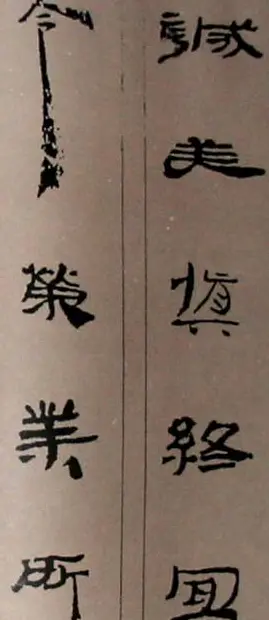 誠美慎終宜
令榮業所